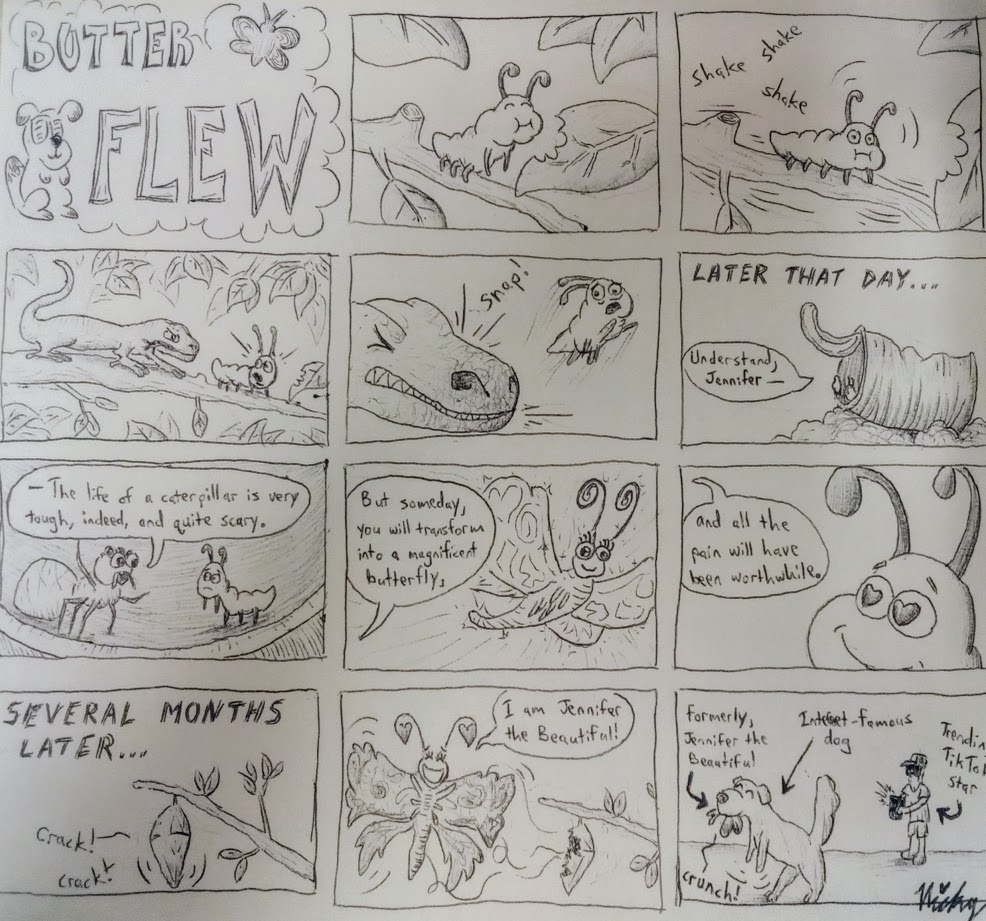 BUTTER
FLEW
shake shake
shake
snap!
LATER THAT DAY...
Understand,
Jennifer —
— The life of a caterpillar is very
tough, indeed, and quite scary.
But someday,
you will transform
into a magnificent
butterfly,
and all the
pain will have
been worthwhile.
SEVERAL MONTHS
LATER...
Crack!
crack!
I am Jennifer
the Beautiful!
Formerly,
Jennifer the
Beautiful
Internet-famous
dog
Trendin
TikTo
Star
crunch!